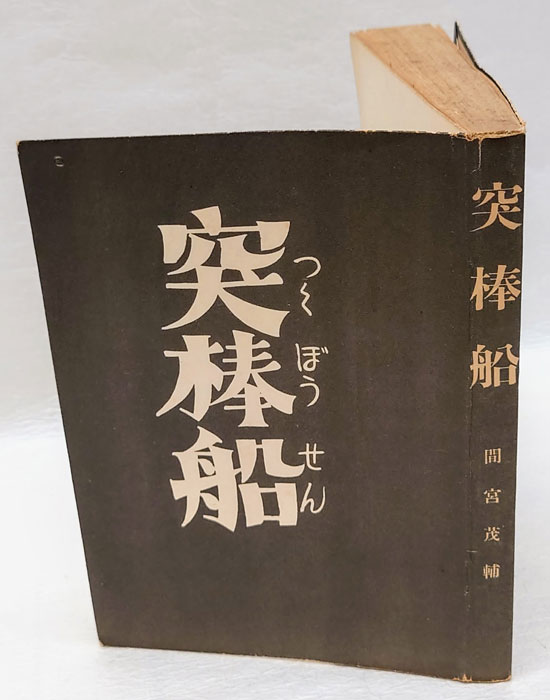 突棒船
つくぼうせん
突棒船 間宮茂輔